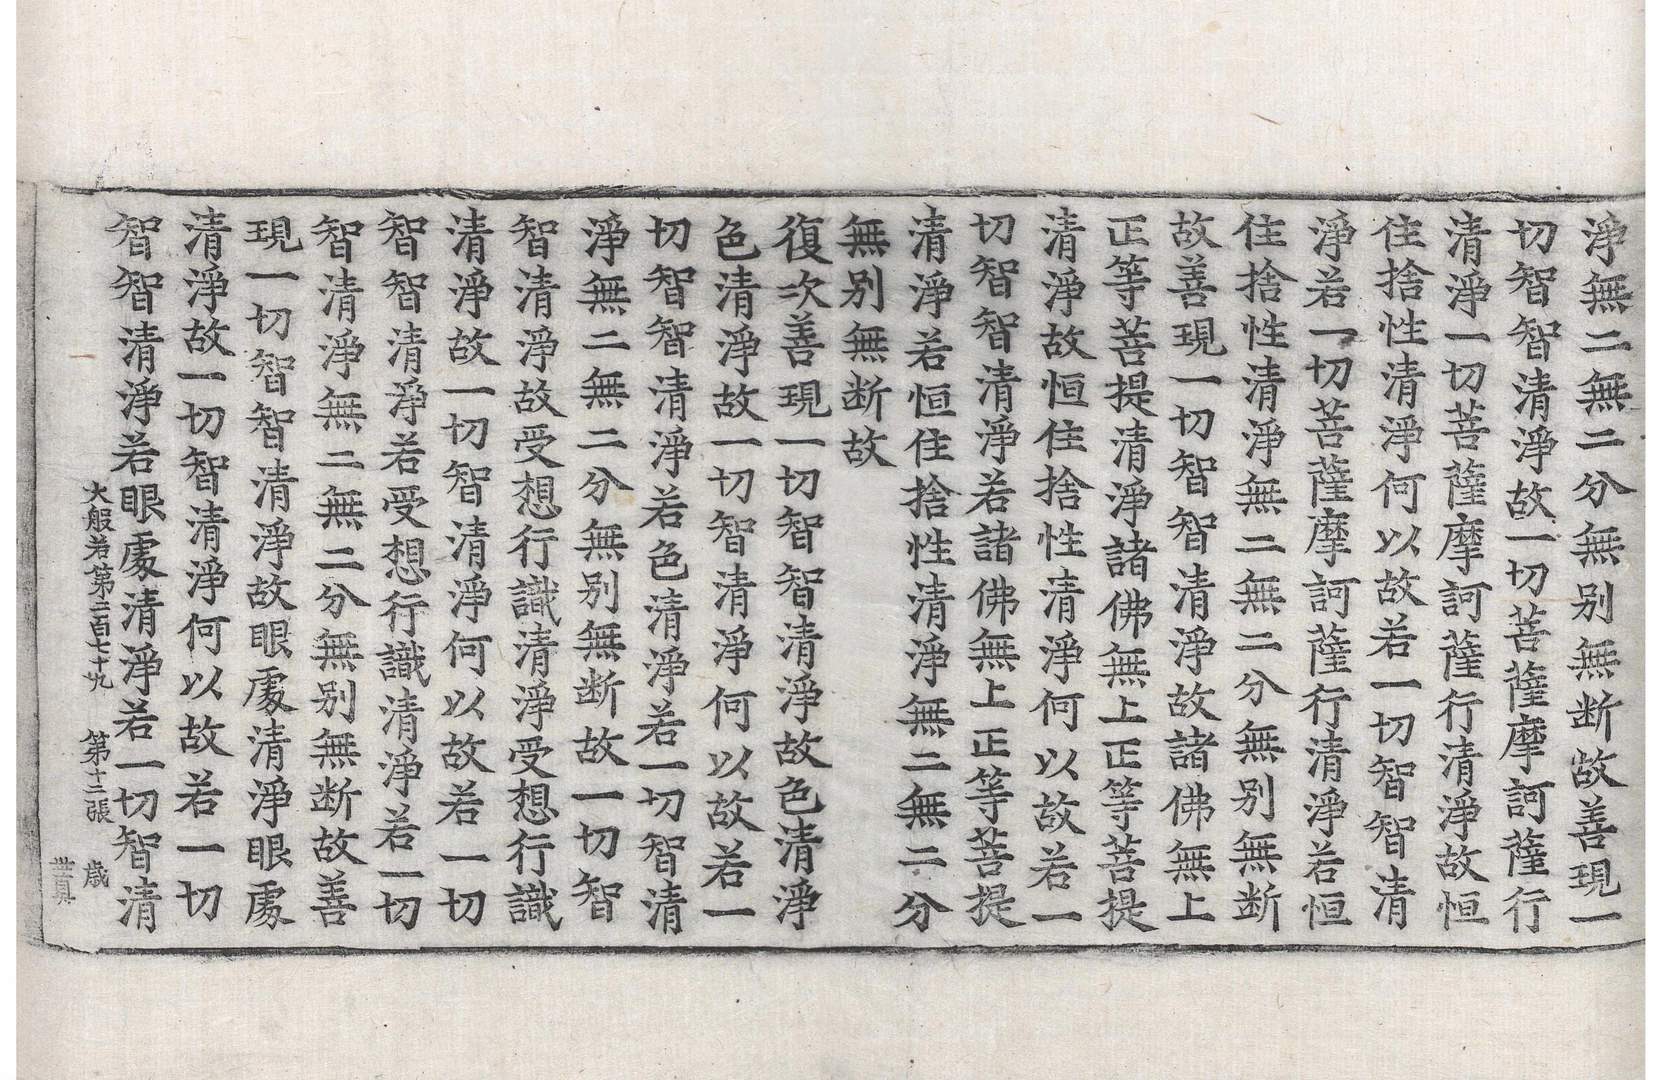 淨無二無二分無别無断故善現一
切智智清淨故一切菩薩摩訶薩行
清淨一切菩薩摩訶薩行清淨故恒
住捨性清淨何以故若一切智智清
淨若一切菩薩摩訶薩行清淨若恒
住捨性清淨無二無二分無别無断
故善現一切智智清淨故諸佛無上
正等菩提清淨諸佛無上正等菩提
清淨故恒住捨性清淨何以故若一
切智智清淨若諸佛無上正等菩提
清淨若恒住捨性清淨無二無二分
無别無断故
復次善現一切智智清淨故色清淨
色清淨故一切智清淨何以故若一
切智智清淨若色清淨若一切智清
淨無二無二分無别無断故一切智
智清淨故受想行識清淨受想行識
清淨故一切智清淨何以故若一切
智智清淨若受想行識清淨若一切
智清淨無二無二分無别無断故善
現一切智智清淨故眼處清淨眼處
清淨故一切智清淨何以故若一切
智智清淨若眼處清淨若一切智清
大般若第二百七十九 第十二張 歲